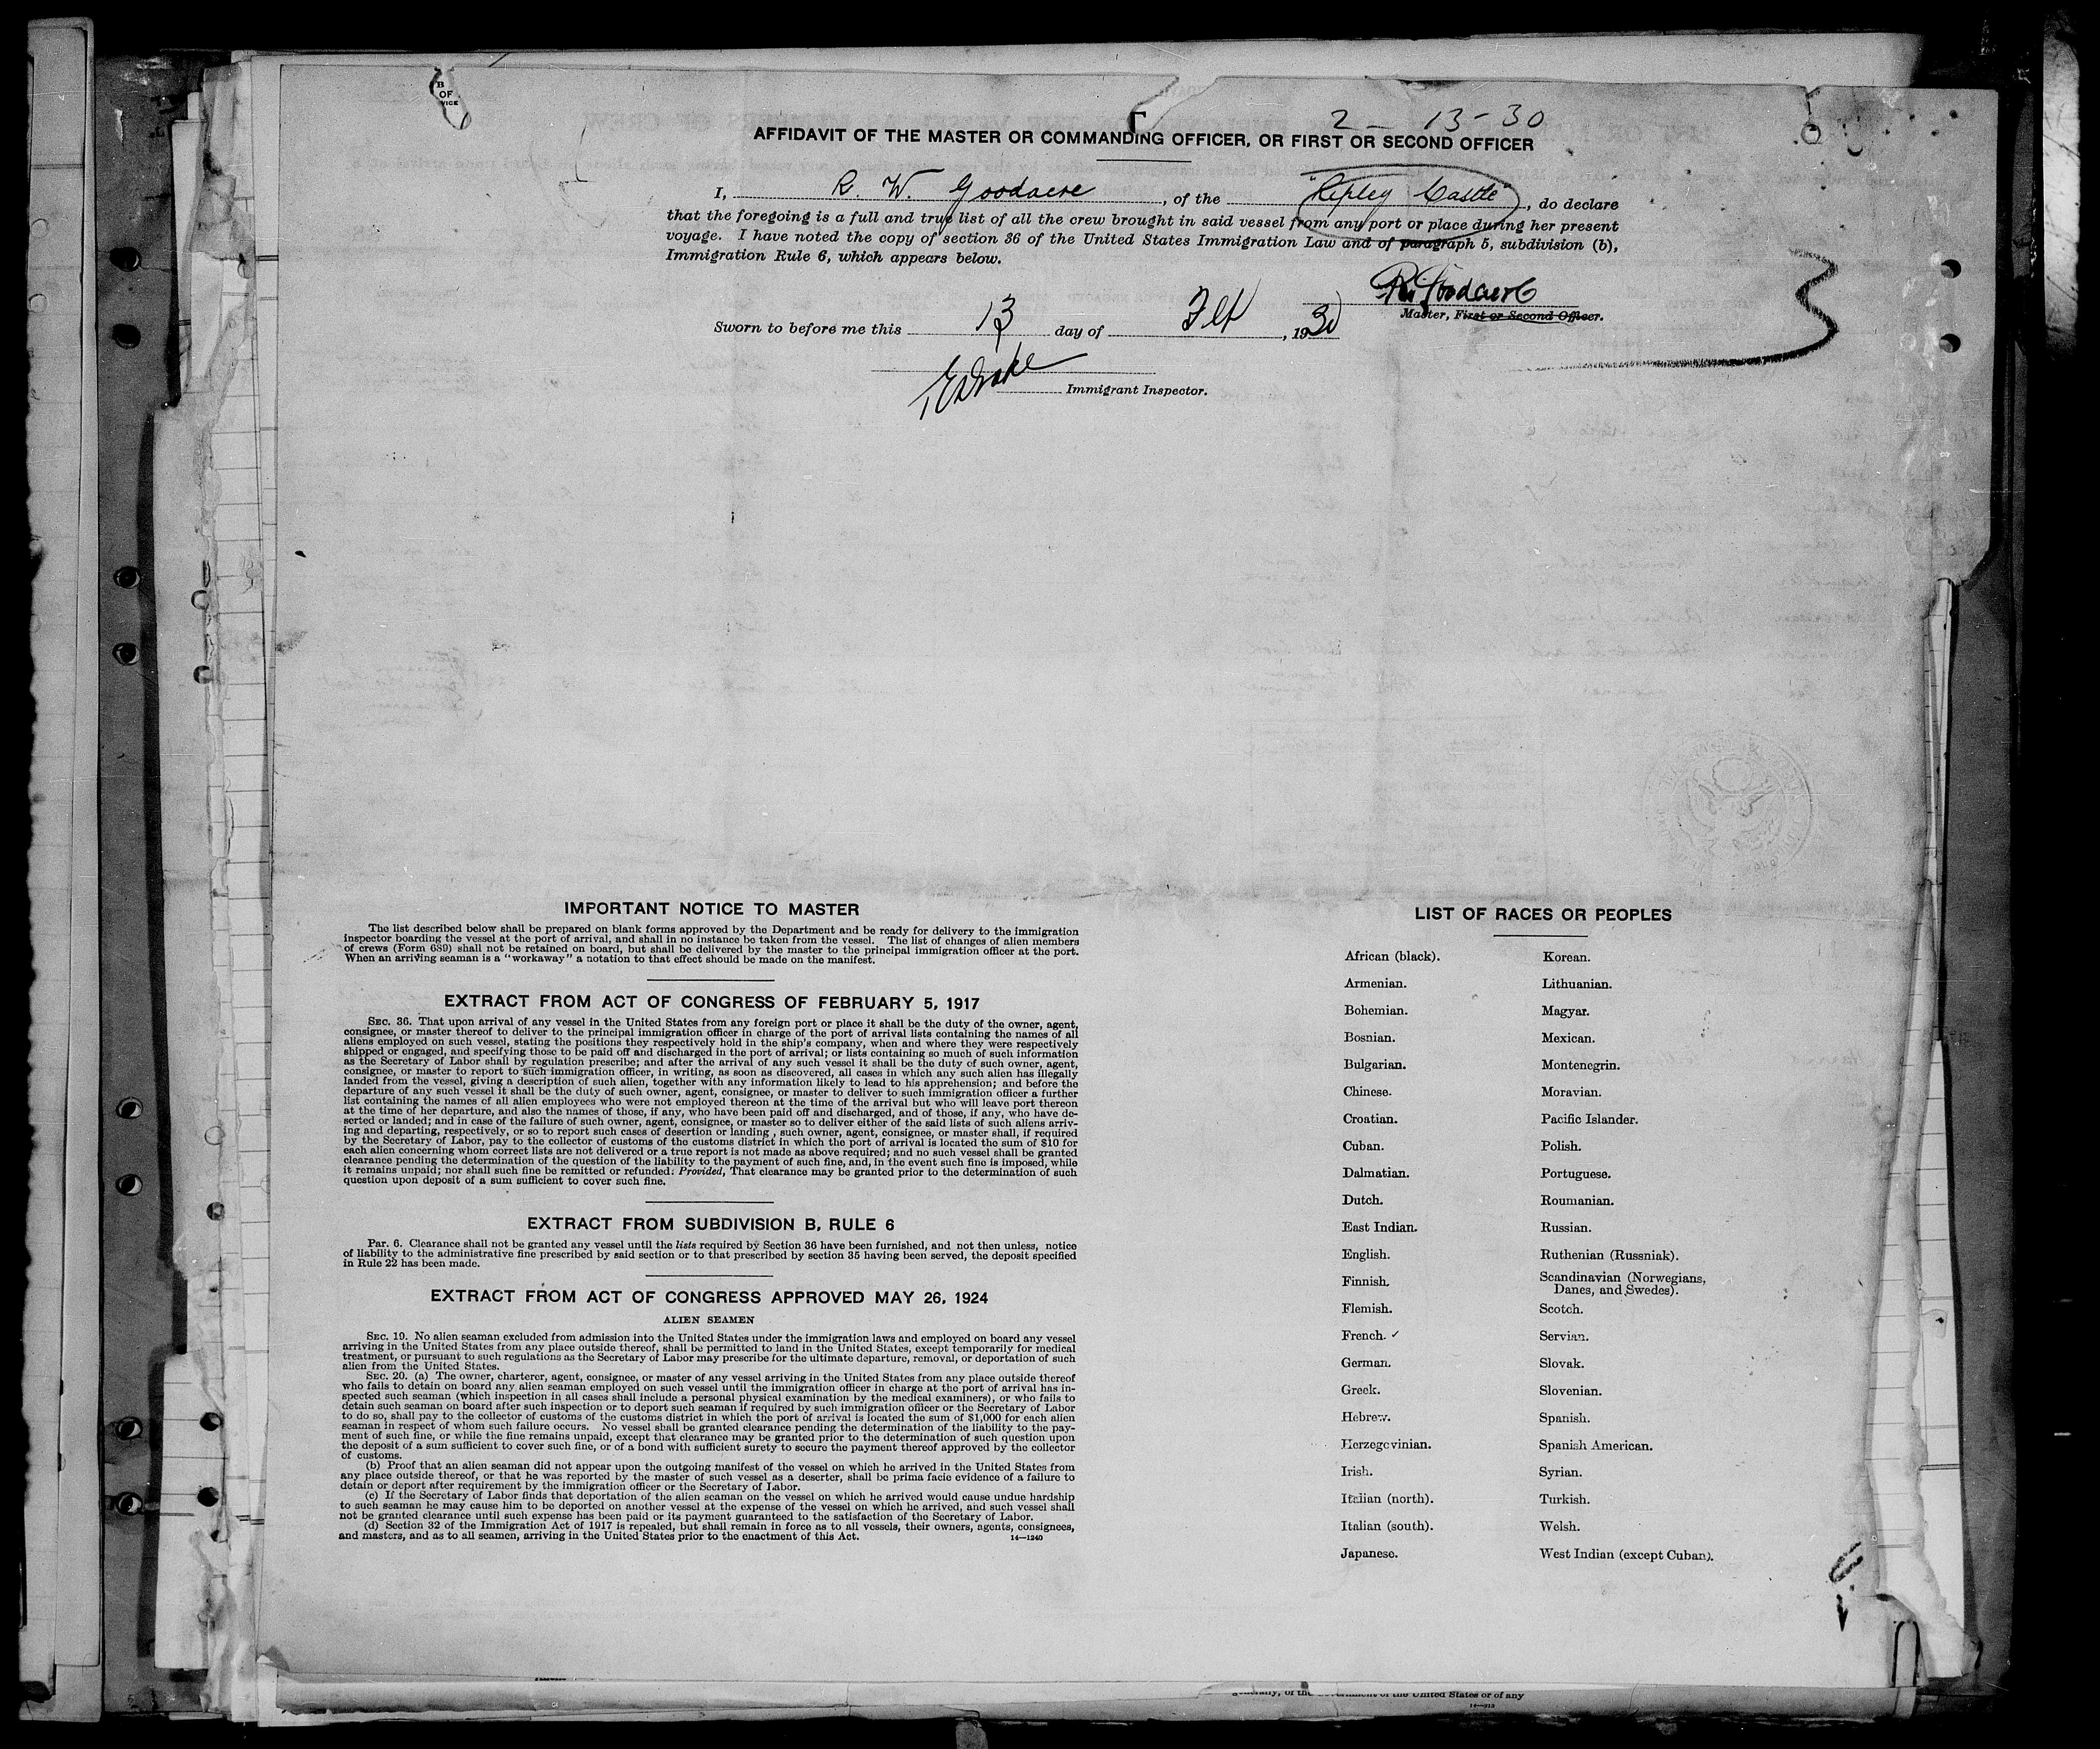 B
OF
VICE
2 - 13-30
AFFIDAVIT OF THE MASTER OR COMMANDING OFFICER, OR FIRST OR SECOND OFFICER
I, R. W. Goodacre, of the "Ripley Castle", do declare
that the foregoing is a full and true list of all the crew brought in said vessel from any port or place during her present
voyage. I have noted the copy of section 36 of the United States Immigration Law and of paragraph 5, subdivision (b),
Immigration Rule 6, which appears below.
R W Goodacre
Master, First or Second Officer.
Sworn to before me this 13 day of Feb, 1930
Immigrant Inspector.
3
IMPORTANT NOTICE TO MASTER
The list described below shall be prepared on blank forms approved by the Department and be ready for delivery to the immigration
inspector boarding the vessel at the port of arrival, and shall in no instance be taken from the vessel. The list of changes of alien members
of crews (Form 689) shall not be retained on board, but shall be delivered by the master to the principal immigration officer at the port.
When an arriving seaman is a "workaway" a notation to that effect should be made on the manifest.
EXTRACT FROM ACT OF CONGRESS OF FEBRUARY 5, 1917
SEC. 36. That upon arrival of any vessel in the United States from any foreign port or place it shall be the duty of the owner, agent,
consignee, or master thereof to deliver to the principal immigration officer in charge of the port of arrival lists containing the names of all
aliens employed on such vessel, stating the positions they respectively hold in the ship's company, when and where they were respectively
shipped or engaged, and specifying those to be paid off and discharged in the port of arrival; or lists containing so much of such information
as the Secretary of Labor shall by regulation prescribe; and after the arrival of any such vessel it shall be the duty of such owner, agent,
consignee, or master to report to such immigration officer, in writing, as soon as discovered, all cases in which any such alien has illegally
landed from the vessel, giving a description of such alien, together with any information likely to lead to his apprehension; and before the
departure of any such vessel it shall be the duty of such owner, agent, consignee, or master to deliver to such immigration officer a further
list containing the names of all alien employees who were not employed thereon at the time of the arrival but who will leave port thereon
at the time of her departure, and also the names of those, if any, who have been paid off and discharged, and of those, if any, who have de-
serted or landed; and in case of the failure of such owner, agent, consignee, or master so to deliver either of the said lists of such aliens arriv-
ing and departing, respectively, or so to report such cases of desertion or landing , such owner, agent, consignee, or master shall, if required
by the Secretary of Labor, pay to the collector of customs of the customs district in which the port of arrival is located the sum of $10 for
each alien concerning whom correct lists are not delivered or a true report is not made as above required; and no such vessel shall be granted
clearance pending the determination of the question of the liability to the payment of such fine, and, in the event such fine is imposed, while
it remains unpaid; nor shall such fine be remitted or refunded: Provided, That clearance may be granted prior to the determination of such
question upon deposit of a sum sufficient to cover such fine.
EXTRACT FROM SUBDIVISION B, RULE 6
PAR. 6. Clearance shall not be granted any vessel until the lists required by Section 36 have been furnished, and not then unless, notice
of liability to the administrative fine prescribed by said section or to that prescribed by section 35 having been served, the deposit specified
in Rule 22 has been made.
EXTRACT FROM ACT OF CONGRESS APPROVED MAY 26, 1924
ALIEN SEAMEN
SEC. 19. No alien seaman excluded from admission into the United States under the immigration laws and employed on board any vessel
arriving in the United States from any place outside thereof, shall be permitted to land in the United States, except temporarily for medical
treatment, or pursuant to such regulations as the Secretary of Labor may prescribe for the ultimate departure, removal, or deportation of such
alien from the United States.
SEC. 20. (a) The owner, charterer, agent, consignee, or master of any vessel arriving in the United States from any place outside thereof
who fails to detain on board any alien seaman employed on such vessel until the immigration officer in charge at the port of arrival has in-
spected such seaman (which inspection in all cases shall include a personal physical examination by the medical examiners), or who fails to
detain such seaman on board after such inspection or to deport such seaman if required by such immigration officer or the Secretary of Labor
to do so, shall pay to the collector of customs of the customs district in which the port of arrival is located the sum of $1,000 for each alien
seaman in respect of whom such failure occurs. No vessel shall be granted clearance pending the determination of the liability to the pay-
ment of such fine, or while the fine remains unpaid, except that clearance may be granted prior to the determination of such question upon
the deposit of a sum sufficient to cover such fine, or of a bond with sufficient surety to secure the payment thereof approved by the collector
of customs.
(b) Proof that an alien seaman did not appear upon the outgoing manifest of the vessel on which he arrived in the United States from
any place outside thereof, or that he was reported by the master of such vessel as a deserter, shall be prima facie evidence of a failure to
detain or deport after requirement by the immigration officer or the Secretary of Labor.
(c) If the Secretary of Labor finds that deportation of the alien seaman on the vessel on which he arrived would cause undue hardship
to such seaman he may cause him to be deported on another vessel at the expense of the vessel on which he arrived, and such vessel shall
not be granted clearance until such expense has been paid or its payment guaranteed to the satisfaction of the Secretary of Labor.
(d) Section 32 of the Immigration Act of 1917 is repealed, but shall remain in force as to all vessels, their owners, agents, consignees,
and masters, and as to all seamen, arriving in the United States prior to the enactment of this Act.
14—1240
LIST OF RACES OR PEOPLES
African (black). Korean.
Armenian. Lithuanian.
Bohemian. Magyar.
Bosnian. Mexican.
Bulgarian. Montenegrin.
Chinese. Moravian.
Croatian. Pacific Islander.
Cuban. Polish.
Dalmatian. Portuguese.
Dutch. Roumanian.
East Indian. Russian.
English. Ruthenian (Russniak).
Finnish. Scandinavian (Norwegians,
Danes, and Swedes).
Flemish. Scotch.
French. ✓ Servian.
German. Slovak.
Greek. Slovenian.
Hebrew. Spanish.
Herzegovinian. Spanish American.
Irish. Syrian.
Italian (north). Turkish.
Italian (south). Welsh.
Japanese. West Indian (except Cuban).
generally, of the Government of the United States or of any